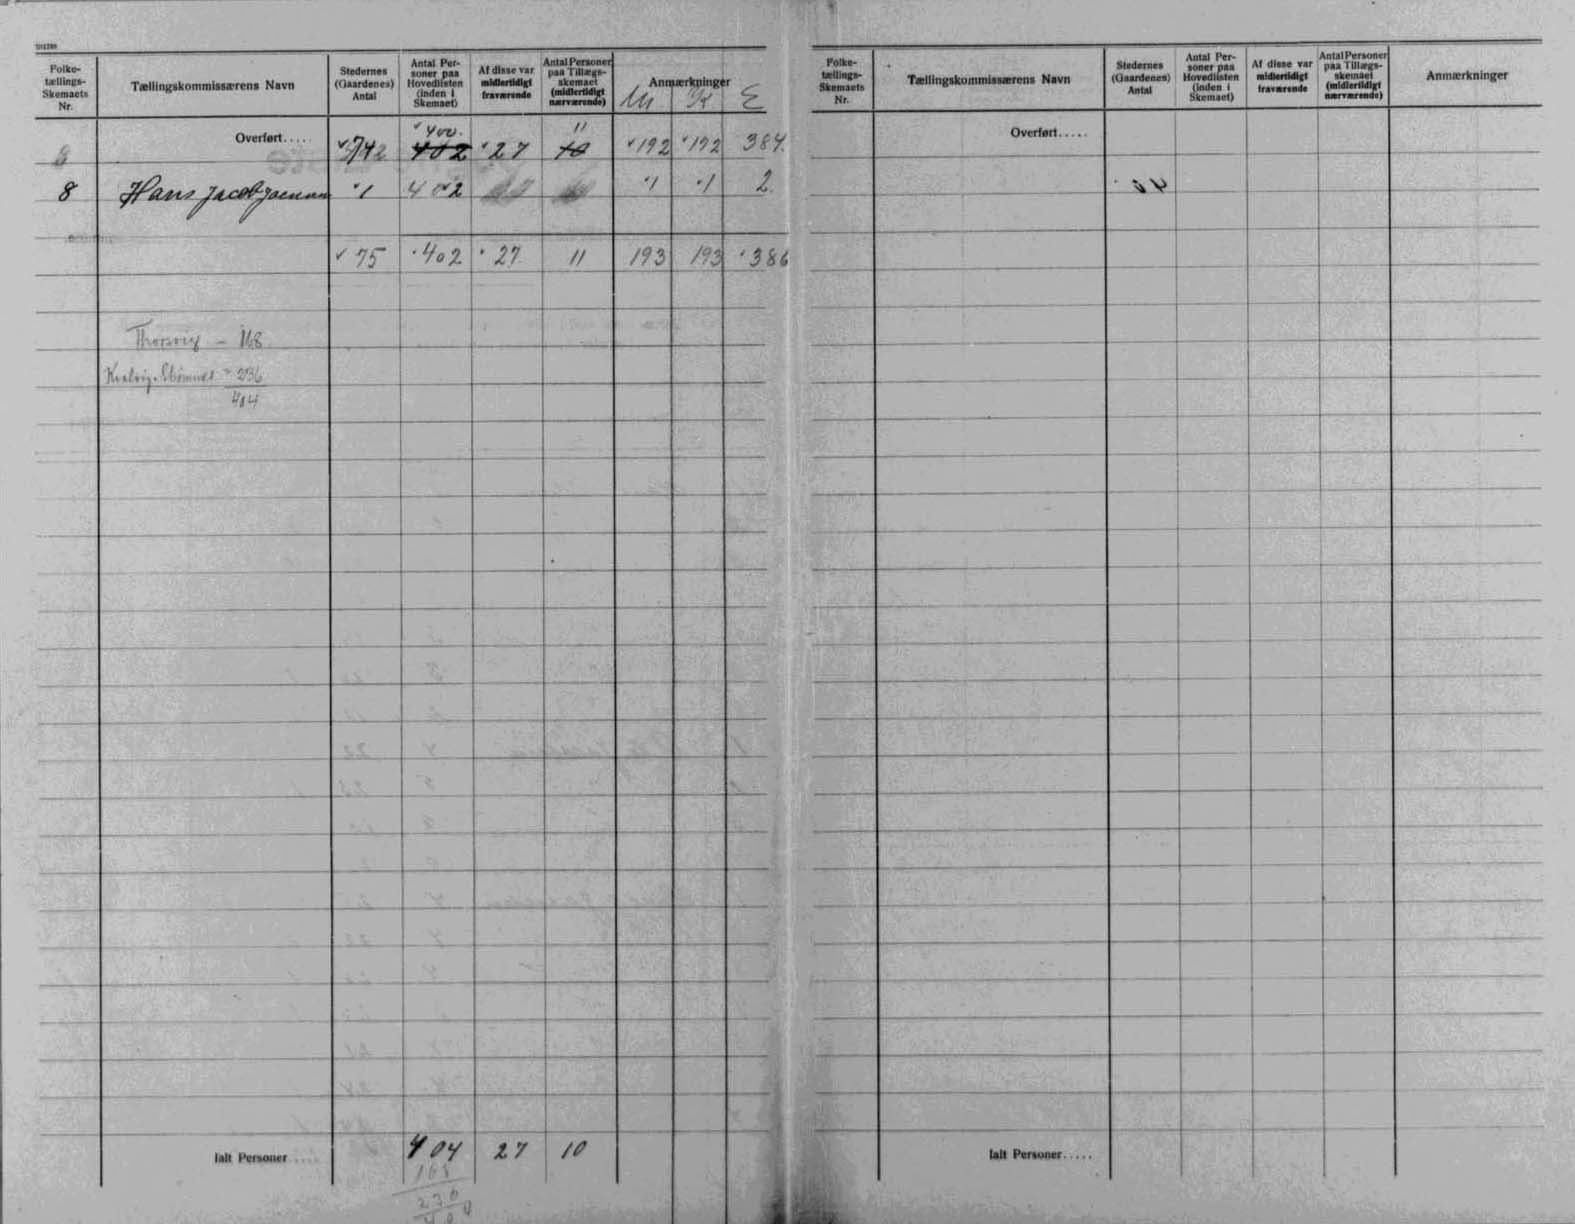 Folke-
tællings-
Skemaets
Nr.
Tællingskommissærens Navn
Stedernes
(Gaardenes)
Antal
Antal Per-
soner paa
Hovedlisten
(inden i
Skemaet)
Af disse var
midlertidigt
fraværende
Antal Personer
paa Tillægs-
skemaet
(midlertidigt
nærværende)
Anmærkninger
M K E
Overført.....
400. 11
402 27 10 192 192 384.
8 Hans Jacob 1 2 1 1 2.
75 402 27 11 193 193 386
168
236
404
Ialt Personer..... 404 27 10
168
236
Folke-
tællings-
Skemaets
Nr.
Tællingskommissærens Navn
Stedernes
(Gaardenes)
Antal
Antal Per-
soner paa
Hovedlisten
(inden i
Skemaet)
Af disse var
midlertidigt
fraværende
Antal Personer
paa Tillægs-
skemaet
(midlertidigt
nærværende)
Anmærkninger
Overført.....
Ialt Personer.....